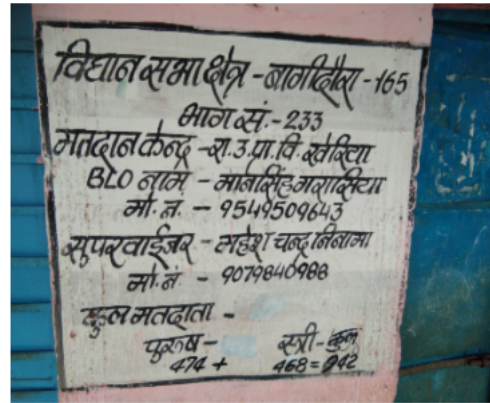 विधान सभा क्षेत्र - बागीदौरा - 165
भाग सं. - 233
मतदान केन्द्र - रा.उ.प्रा.वि. खेरिया
BLO नाम - मानसिंह गरासिया
मो. न. - 9549509643
सुपरवाईजर - महेश चन्द्र निनामा
मो. नं. - 9079840988
कुल मतदाता -
पुरुष - स्त्री - कुल
474 + 468 = 942